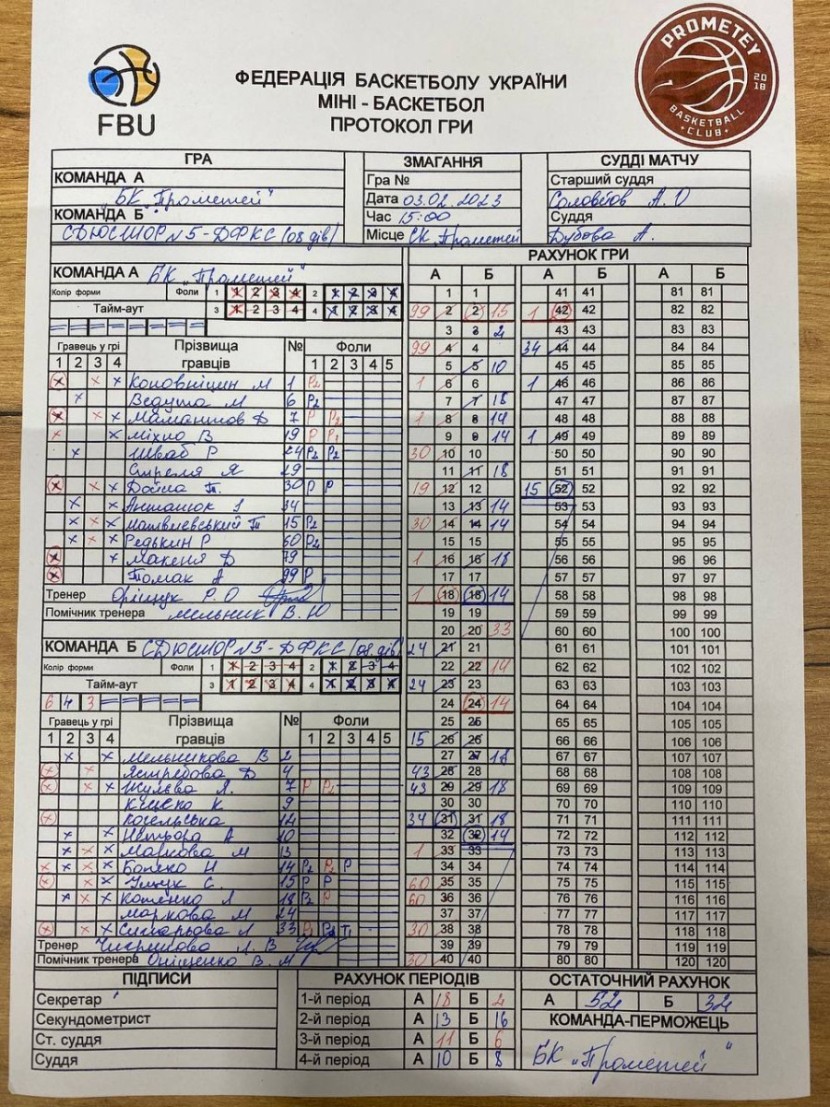 FBU
ФЕДЕРАЦІЯ БАСКЕТБОЛУ УКРАЇНИ
МІНІ - БАСКЕТБОЛ
ПРОТОКОЛ ГРИ
PROMETEY
2018
BASKETBALL
• CLUB •
ГРА
КОМАНДА А
БК "Прометей"
КОМАНДА Б
СДЮСШОР №5-ДФКС (08 дів)
ЗМАГАННЯ
Гра №
Дата 03.02.2023
Час 15:00
Місце СК Прометей
СУДДІ МАТЧУ
Старший суддя
Соловйов А. О
Суддя
Дубова А.
КОМАНДА А БК "Прометей"
Колір форми Фоли 1 1 2 3 4 2 1 2 3 4
Тайм-аут 3 1 2 3 4 4 1 2 3 4
Гравець у грі Прізвища гравців № Фоли
1 2 3 4 1 2 3 4 5
Коновніцин М 1 P2
Ведута М 6 P2
7 P P2
Міхно В 19 P P2
Шваб Р 24 P2 P2
Стреля Я 29
30 P P
34
15 P2
Редькин Р 60 P2
Макеня Д 79
Томак А 99 P
Тренер Оріщук Р. О
Помічник тренера Мельник В. Ю
КОМАНДА Б СДЮСШОР №5-ДФКС (08 дів)
Колір форми Фоли 1 1 2 3 4 2 1 2 3 4
Тайм-аут 3 1 2 3 4 4 1 2 3 4
6 4 3
Гравець у грі Прізвища гравців № Фоли
1 2 3 4 1 2 3 4 5
Мельникова В 2
Ястребова Д 4
7 P P2
9
Козельська 12
10
Маркова М 13
14 P2 P2 P
15 P P
Котенко Л 18 P2 P
Маркова М 24
33
Тренер
Помічник тренера Оніщенко В. М
РАХУНОК ГРИ
А Б А Б А Б
1 1 41 41 81 81
99 2 2 15 1 42 42 82 82
3 3 2 43 43 83 83
99 4 4 34 44 44 84 84
5 5 10 45 45 85 85
1 6 6 1 46 46 86 86
7 7 18 47 47 87 87
1 8 8 14 48 48 88 88
9 9 14 1 49 49 89 89
30 10 10 50 50 90 90
11 11 18 51 51 91 91
19 12 12 15 52 52 92 92
13 13 14 53 53 93 93
30 14 14 14 54 54 94 94
15 15 55 55 95 95
1 16 16 18 56 56 96 96
17 17 57 57 97 97
1 18 18 14 58 58 98 98
19 19 59 59 99 99
20 20 33 60 60 100 100
24 21 21 61 61 101 101
22 22 14 62 62 102 102
24 23 23 63 63 103 103
24 24 14 64 64 104 104
25 25 65 65 105 105
15 26 26 66 66 106 106
27 27 18 67 67 107 107
43 28 28 68 68 108 108
43 29 29 18 69 69 109 109
30 30 70 70 110 110
34 31 31 18 71 71 111 111
32 32 14 72 72 112 112
1 33 33 73 73 113 113
34 34 74 74 114 114
60 35 35 75 75 115 115
60 36 36 76 76 116 116
37 37 77 77 117 117
30 38 38 78 78 118 118
39 39 79 79 119 119
30 40 40 80 80 120 120
ПІДПИСИ
Секретар
Секундометрист
Ст. суддя
Суддя
РАХУНОК ПЕРІОДІВ
1-й період А 18 Б 2
2-й період А 13 Б 16
3-й період А 11 Б 6
4-й період А 10 Б 8
ОСТАТОЧНИЙ РАХУНОК
А 52 Б 32
КОМАНДА-ПЕРМОЖЕЦЬ
БК "Прометей"